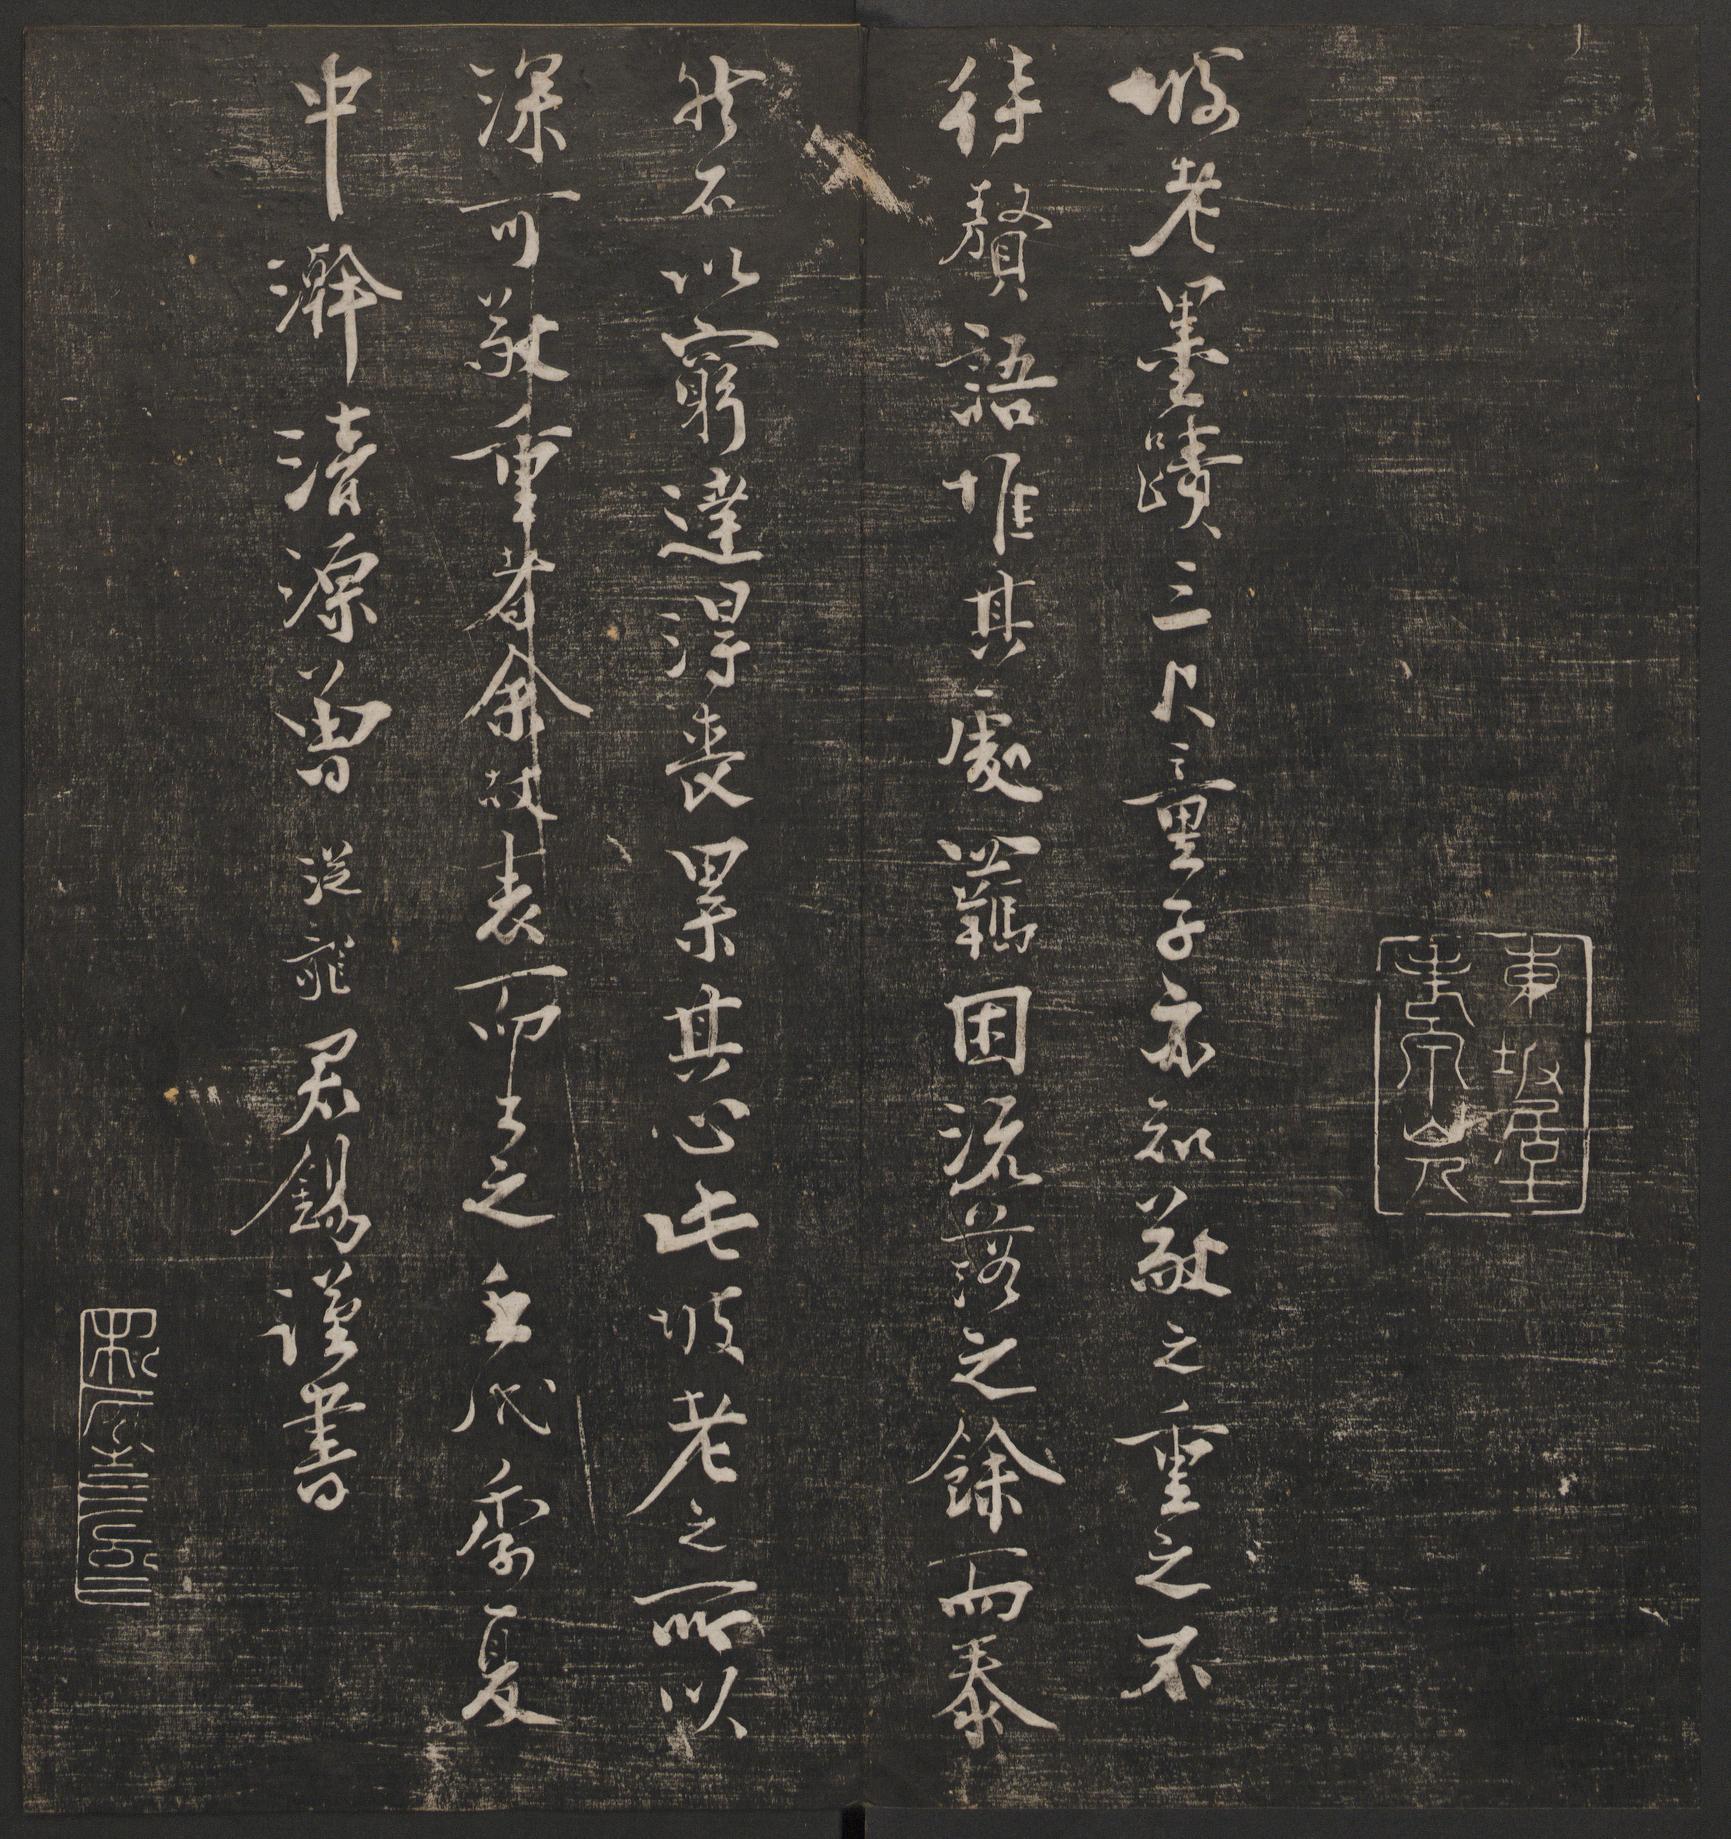 東坡居士
坡老墨蹟三尺童子亦知敬之重之不
待贅語惟其處羈困流落之餘而泰
然不以窮達得喪累其心此坡老之所以
深可敬重者余故表而
戊季夏
中澣清源曾從龍君錫謹書